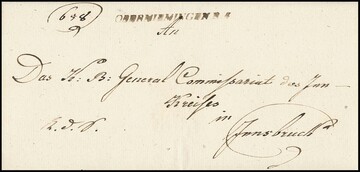 638
OBERMIEMINGEN R. 4
An
Das K: B: General Commissariat des Inn-
Kreises
in
R. d. S.
Innsbruck